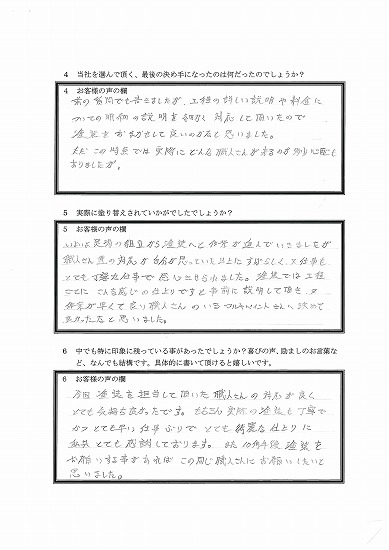 4 当社を選んで頂く、最後の決め手になったのは何だったのでしょうか?
4 お客様の声の欄
前の質問でも書きましたが、工程の詳しい説明や料金に
ついての明細の説明を細かく対応して頂いたので
塗装をおまかせして良いのかなと思いました。
ただこの時点では実際にどんな職人さんが来るのか心配も
ありましたが。
5 実際に塗り替えされていかがでしたでしょうか?
5 お客様の声の欄
いよいよ足場の組立から塗装へと作業が進んでいきましたが
職人さん達の対応が自分が思っていた以上にすばらしく、又仕事も
とても丁寧な仕事で思い以上でした。塗装では工程
ごとにこんな感じの仕上りですと事前に説明して頂き、又
作業が早くて良い職人さんのいるマルチペイントさんへ決めて
良かったなと思いました。
6 中でも特に印象に残っている事があったでしょうか?喜びの声、励ましのお言葉な
ど、なんでも結構です。具体的に書いて頂けると嬉しいです。
6 お客様の声の欄
今回塗装を担当して頂いた職人さんの対応が良く
とても気持ち良かったです。もちろん実際の塗装も丁寧で
かつとても早い仕事ぶりでとても綺麗な仕上りに
私共とても感謝しております。また10年後塗装を
お願いする事があればこの同じ職人さんにお願いしたいと
思いました。